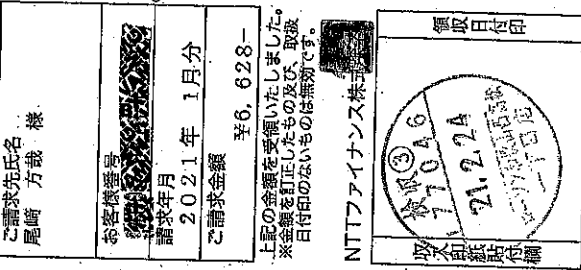 ご請求先氏名
尾﨑 方哉 様
お客様番号
請求年月
2021年 1月分
ご請求金額
¥6,628-
上記の金額を受領いたしました。
※金額を訂正したもの及び、取扱
日付印のないものは無効です。
NTTファイナンス株式
領収日付印
検収③
77046
21.2.24
収入印紙貼付欄